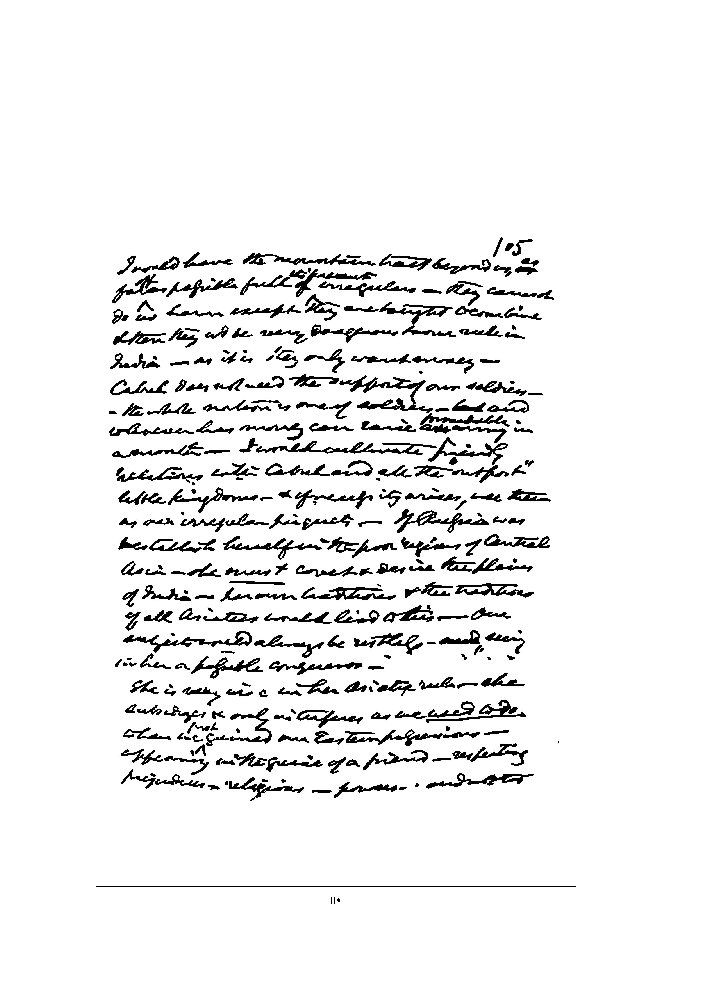 105
I would leave the mountain tract beyond us, as
far as possible full of the present irregulars — they cannot
do us harm except they are taught to combine
& then they wd be very dangerous to our rule in
India — as it is they only want money —
Cabul does not need the support of our soldiers —
— the whole nation is one of soldiers — and
whoever has money can raise formidable army in
a month — I would cultivate friendly
relations with Cabul and all the "outpost"
little kingdoms — & if necessity arises, use them
as our irregular picquets — If Russia was
to establish herself in the poor regions of Central
Asia — she must covet & desire the plains
of India — her own traditions & the traditions
of all Asiatics would lead to this — Our
subjects would always be restless — seeing
in her a possible conqueror —
She is very wise in her Asiatic rule — she
subsidizes & only interferes as we used to do
when we first gained our Eastern possessions —
appearing in the guise of a friend — respecting
prejudices — religions —
110